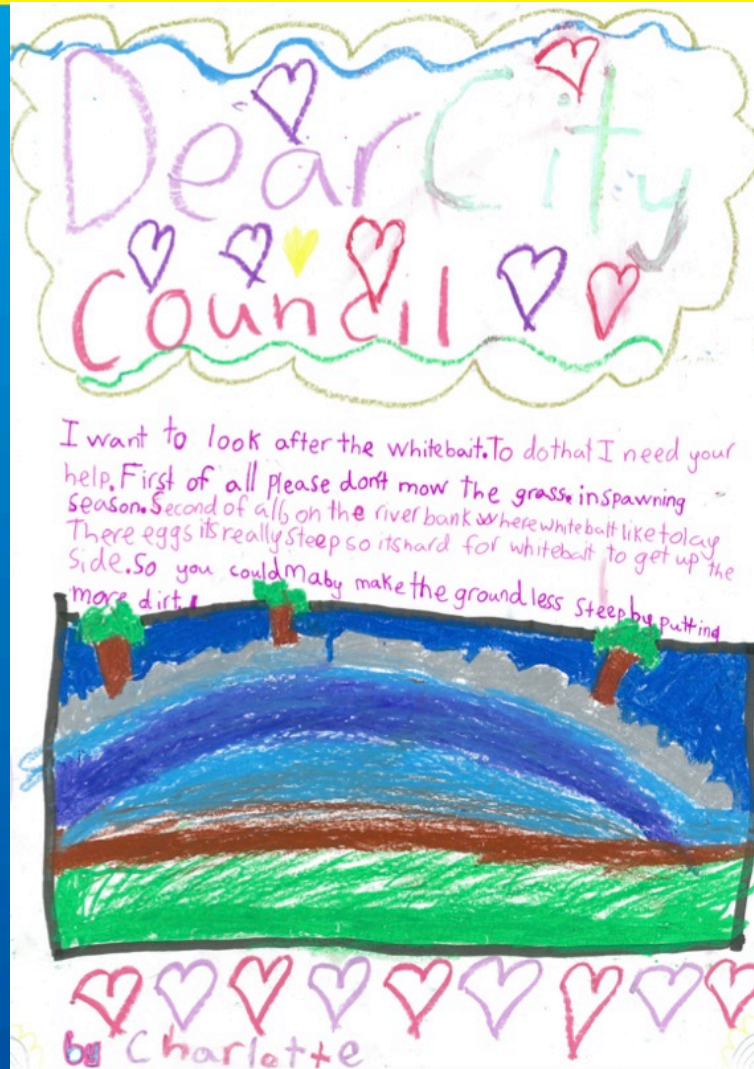 Dear City
Council
I want to look after the whitebait. To do that I need your
help. First of all please don't mow the grass. in spawning
season. Second of all, on the river bank where whitebait like to lay
There eggs its really steep so its hard for whitebait to get up the
side. So you could maby make the ground less steep by putting
more dirt.
by Charlotte